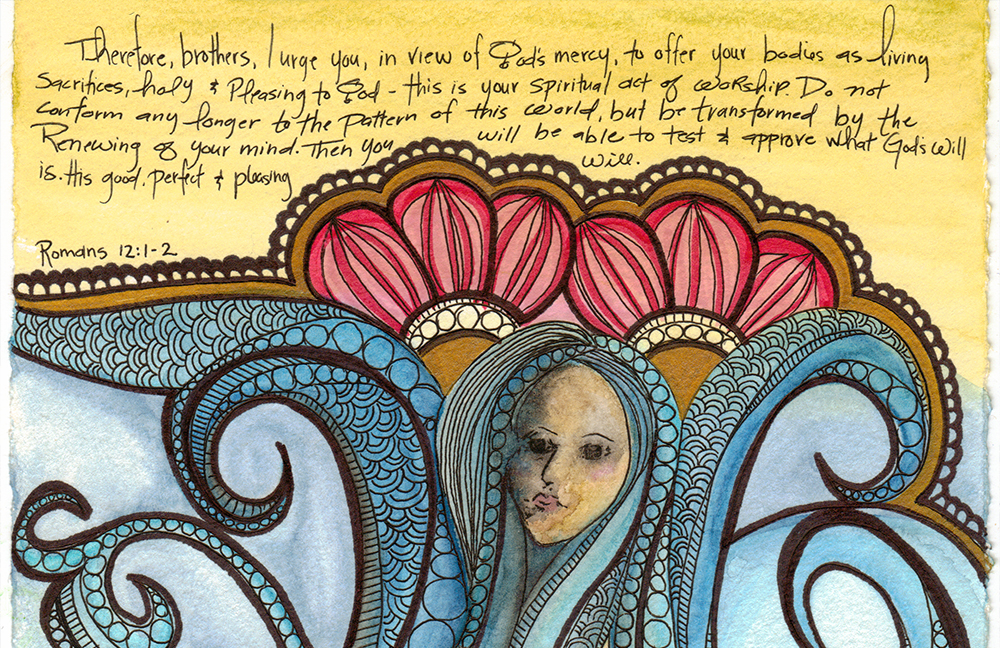 Therefore, brothers, I urge you, in view of God's mercy, to offer your bodies as living
Sacrifices, holy & Pleasing to God - this is your spiritual act of worship. Do not
conform any longer to the pattern of this world, but be transformed by the
Renewing of your mind. Then you will be able to test & approve what God's will
is. His good. perfect & pleasing will.
Romans 12:1-2